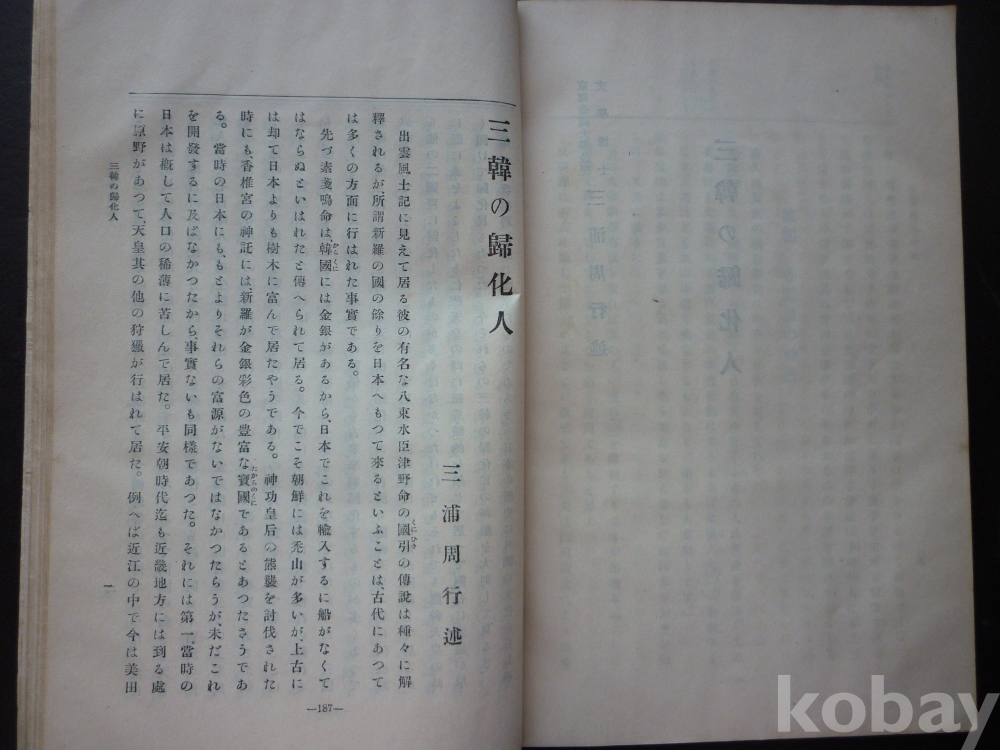 三韓の歸化人
三浦周行述
出雲風土記に見えて居る彼の有名な八束水臣津野命の國引の傳說は種々に解
くにひき
釋されるが、所謂新羅の國の餘りを日本へもつて來るといふことは、古代にあつて
は多くの方面に行はれた事實である。
先づ素戔嗚命は、韓國には金銀があるから、日本でこれを輸入するに船がなくて
からくに
はならぬといはれたと傳へられて居る。今でこそ朝鮮には禿山が多いが、上古に
は却て日本よりも樹木に富んで居たやうである。神功皇后の熊襲を討伐された
時にも、香椎宮の神託には、新羅が金銀彩色の豊富な寶國であるとあつたさうであ
たからのくに
る。當時の日本にも、もとよりそれらの富源がないではなかつたらうが、未だこれ
を開發するに及ばなかつたから、事實ないも同樣であつた。それには第一、當時の
日本は槪して人口の稀薄に苦しんで居た。平安朝時代迄も近畿地方には到る處
に原野があつて、天皇其の他の狩獵が行はれて居た。例へば近江の中で今は美田
三韓の歸化人
一
—187—
三韓の歸化人
三浦周行述
kobay